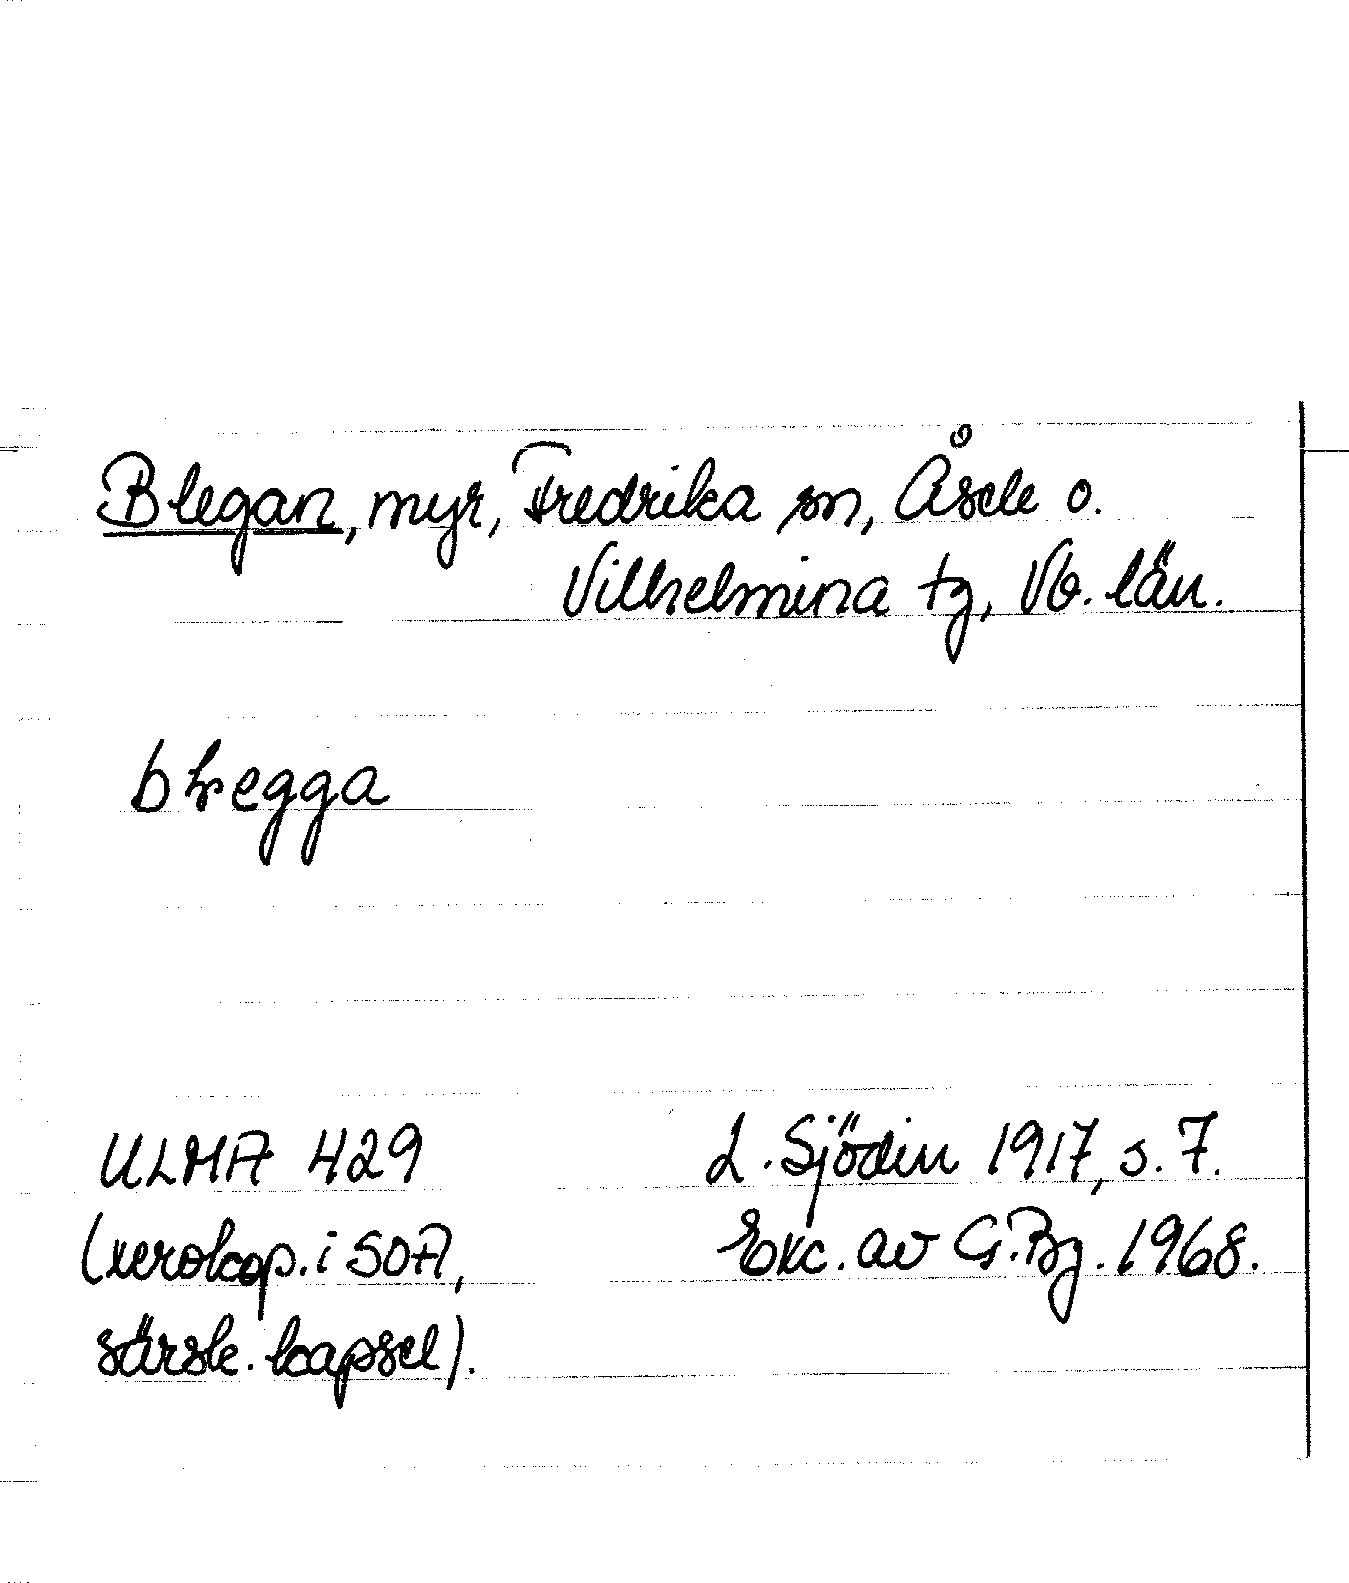 Blegan, myr, Fredrika sn, Åsele o.
Vilhelmina tg, Vb. län.
blegga
ULMA 429
(xerokop. i SOA,
särsk. kapsel).
L. Sjödin 1917, s. 7.
Exc. av G. Bg. 1968.